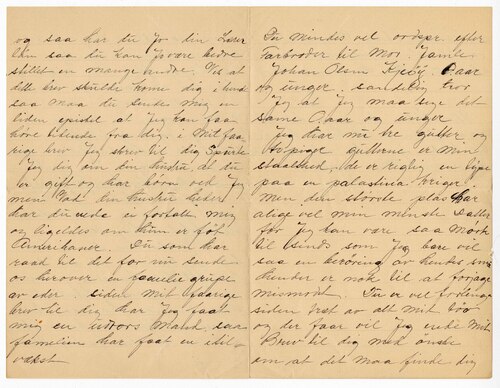 og saa har du jo din Laser
saa du kan være bedre
stillet en mange andre. Ved at
dit brev skulde komme dig i hænd
saa maa du sende mig en
liden epistel at Jeg kan faa
høre lidende fra dig, i Mit for
rige brev Jeg skrev til dig Spurte
Jeg dig om din hustru at du
er gift og har børn ved Jeg
men vad din hustru heder
har du vede en fortalt mig
og ligeledes om hun er født
Amerikaner. Du som har
raad til det for nu sende
os herover en familie grupe
av eder. siden mit forrige
brev til dig har Jeg faat
mig en utvors Mand, saa
familien har faat en til-
vækst
Du mindes vel ordspr. efter
Farbroder til Mor. Gamle
Johan Olsen Kjeby. Aar
og unger, sandelig tror
Jeg at Jeg maa sige det
samme Aar og unger
Jeg har nu tre gutter, og
gutterne er min
de er riglig en
paa en palastina kriger
Men den storste plas har
alige vel min minste Datter
for Jeg kan være saa Mørk
til sinds som Jeg bare vil
saa en berøring av hendes små
hender er nok til at forjage
mismodet. Du er vel
siden træt av alt mit
og der faar vel Jeg ende Mit
Brev til dig med ønske
om at det maa finde dig